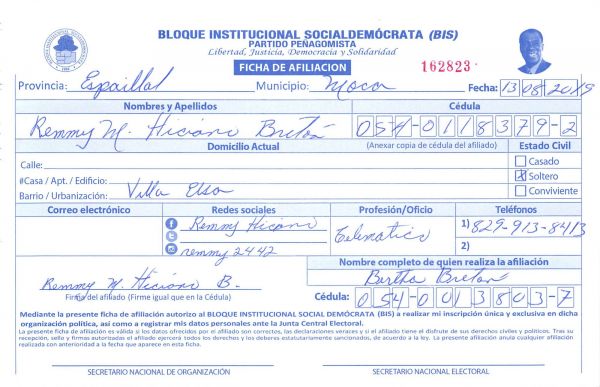 BLOQUE INSTITUCIONAL SOCIALDEMÓCRATA (BIS)
PARTIDO PEÑAGOMISTA
Libertad, Justicia, Democracia y Solidaridad
FICHA DE AFILIACION
162823
Provincia: Espaillat Municipio: Moca Fecha: 13/08/2019
Nombres y Apellidos Cédula
Remmy M. Hiciano Bretón 054-0118379-2
Domicilio Actual (Anexar copia de cédula del afiliado) Estado Civil
Calle: Casado
#Casa / Apt. / Edificio: X Soltero
Barrio / Urbanización: Villa Elsa Conviviente
Correo electrónico Redes sociales Profesión/Oficio Teléfonos
Remmy Hiciano Telematico 1) 829-913-8413
remmy 2442 2)
Nombre completo de quien realiza la afiliación
Remmy M. Hiciano B. Bertha Bretón
Firma del afiliado (Firme igual que en la Cédula) Cédula: 054-0013803-7
Mediante la presente ficha de afiliación autorizo al BLOQUE INSTITUCIONAL SOCIAL DEMÓCRATA (BIS) a realizar mi inscripción única y exclusiva en dicha
organización política, así como a registrar mis datos personales ante la Junta Central Electoral.
La presente ficha de afiliación es válida si los datos ofrecidos por el afiliado son correctos, las declaraciones veraces y si el afiliado tiene el disfrute de sus derechos civiles y políticos. Tras su
recepción, sello y firmas autorizadas el afiliado ejercerá todos los derechos y los deberes estatutariamente sancionados, de acuerdo a la ley. La presente afiliación anula cualquier afiliación
realizada con anterioridad a la fecha que aparece en esta ficha.
SECRETARIO NACIONAL DE ORGANIZACIÓN SECRETARIO NACIONAL ELECTORAL